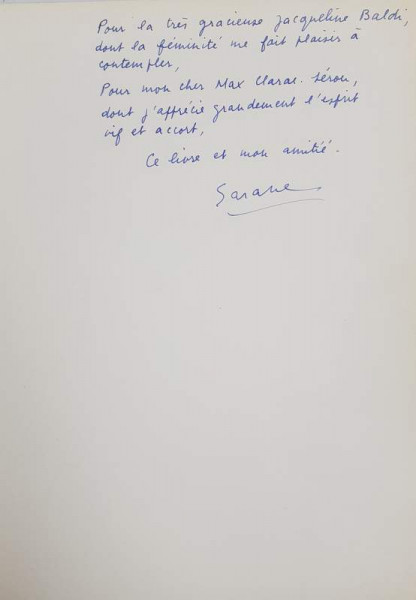 Pour la très gracieuse Jacqueline Baldi,
dont la féminité me fait plaisir à
contempler,
Pour mon cher Max Clarac-Sérou,
dont j'apprécie grandement l'esprit
vif et accort,
Ce livre et mon amitié.
Sarane